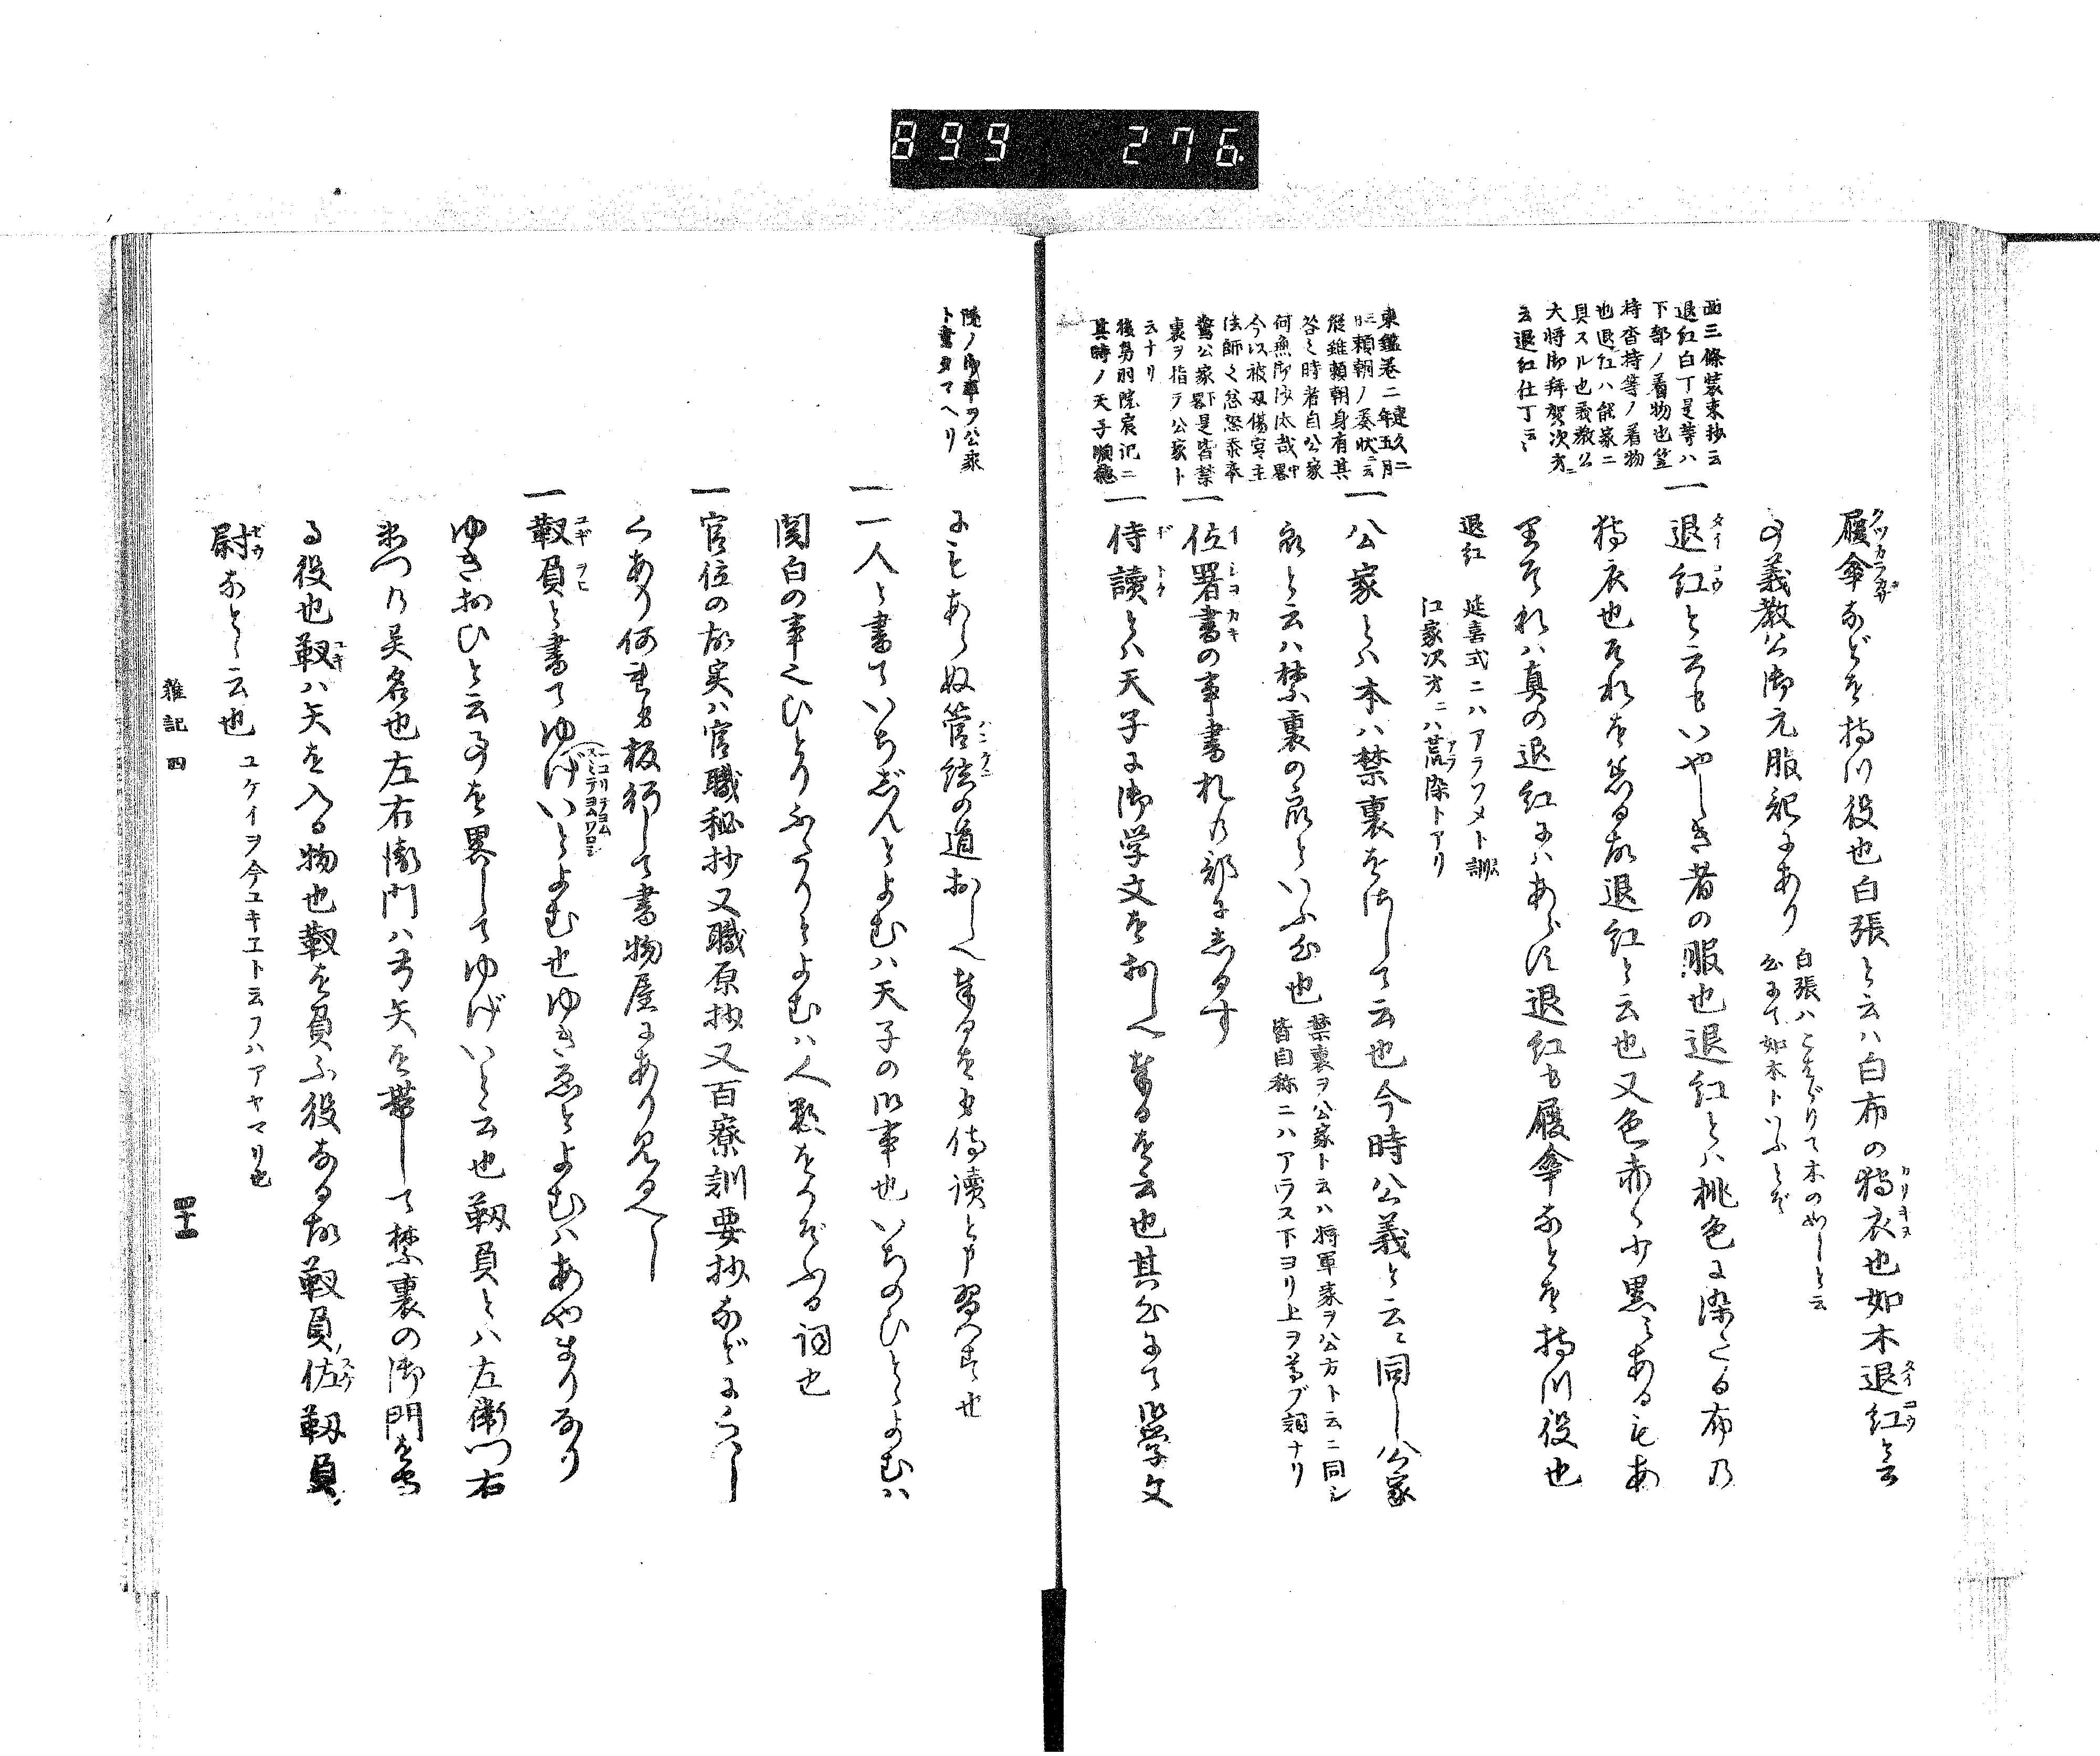 899 276
西三條装束抄云
退紅白丁是等ハ
下部ノ着物也笠
持沓持等ノ着物
也退紅ハ能家ニ
具スル也義教公
大将御拝賀次第ニ
云退紅仕丁云々
履傘などを持川役也白張と云ハ白布の狩衣也如木退紅と云
事義教公御元服記にあり
白張ハこはばりて木の如しと云
心にて如木トいふとぞ
一退紅と云もいやしき者の服也退紅とハ桃色に染たる布乃
狩衣也それを着る故退紅と云也又色赤く少黒ミあるもあ
里それハ真の退紅にハあらず退紅も履傘なとを持川役也
退紅 延喜式ニハアラソメト訓
江家次第ニハ荒染トアリ
東鑑巻二建久二年五月
三日頼朝ノ奏状ニ云
縦雖頼朝身有其
咎之時者自公家
何無御沙汰哉中畧
今以被刃傷宮主
法師之忿怒忝奉
驚公家下畧是皆禁
裏ヲ指テ公家ト
云ナリ
後鳥羽院宸記ニ
其時ノ天子順徳
一公家とハ本ハ禁裏をさして云也今時公義と云ニ同し公家
衆と云ハ禁裏の衆といふ心也
禁裏ヲ公家ト云ハ将軍家ヲ公方ト云ニ同シ
皆自称ニハアラス下ヨリ上ヲ尊ブ詞ナリ
一位署書の事書札乃部にしるす
一侍讀とハ天子に御学文を押しへ奉るを云也其心にて御学文
院ノ御事ヲ公家
ト書タマヘリ
にもあらぬ管絃の道おしへ奉るをも侍讀と申習ハす也
一一人と書ていちじんとよむハ天子の御事也いちのひととよむハ
関白の事也ひとりふたりとよむハ人数をかぞふる詞也
一官位の故実ハ官職秘抄又職原抄又百寮訓要抄などにくハし
くあり何連も板行して書物屋にあり見るべし
一靫負と書てゆげいとよむ也ゆきゑとよむハあやまりなり
ゆきおひと云事を畧してゆげいと云也靱負とハ左衛門右
衛門乃異名也左右衛門ハ弓矢を帯して禁裏の御門を守
る役也靫ハ矢を入る物也靫を負ふ役なる故靫負ノ佐靱負ノ
尉などゝ云也 ユケイヲ今ユキエト云フハアヤマリ也
雜記四 四十二